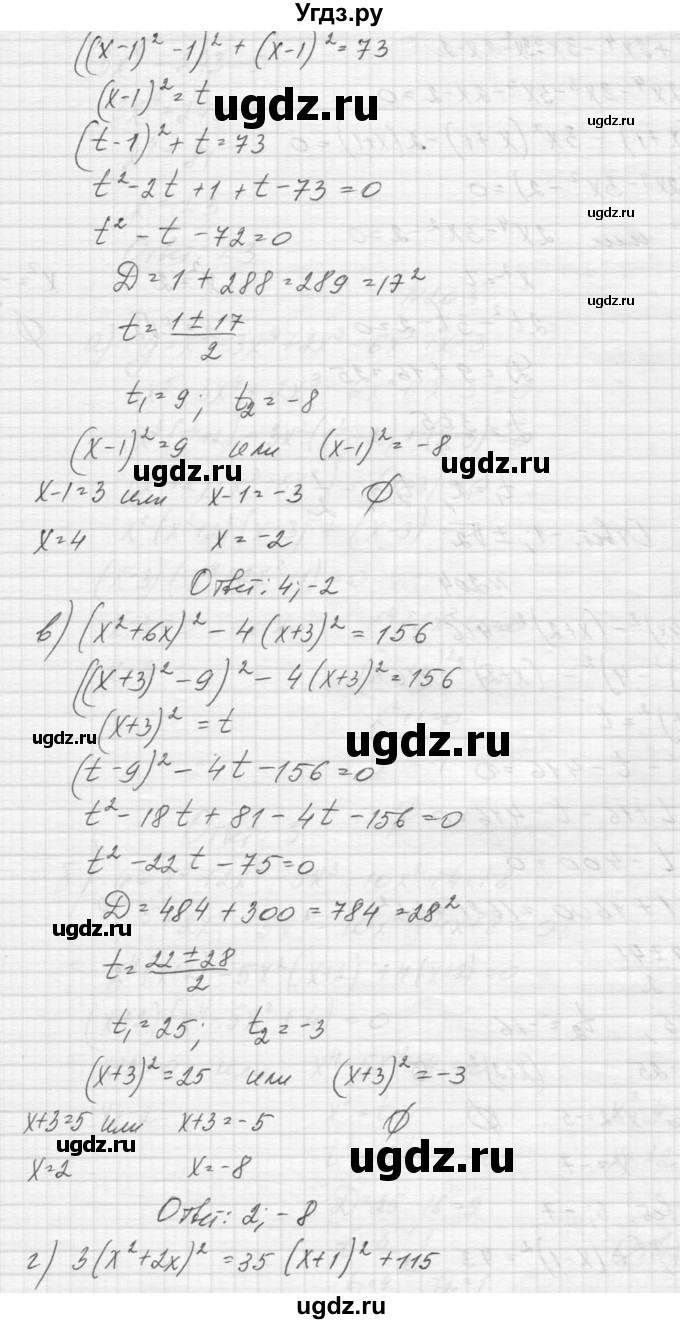 Угдз.ру
((x-1)² -1)² + (x-1)² = 73
(x-1)² = t
ugdz.ru
ugdz.ru
(t-1)² + t = 73
t² - 2t + 1 + t - 73 = 0
ugdz.ru
t² - t - 72 = 0
D = 1 + 288 = 289 = 17²
ugdz.ru
t = (1 ± 17)/2
t₁ = 9; t₂ = -8
(x-1)² = 9 или (x-1)² = -8
ugdz.ru
ugdz.ru
x-1=3 или x-1=-3 ∅
x=4 x=-2
Ответ: 4; -2
в) (x²+6x)² - 4(x+3)² = 156
((x+3)² - 9)² - 4(x+3)² = 156
ugdz.ru
(x+3)² = t
ugdz.ru
(t-9)² - 4t - 156 = 0
t² - 18t + 81 - 4t - 156 = 0
t² - 22t - 75 = 0
D = 484 + 300 = 784 = 28²
ugdz.ru
t = (22 ± 28)/2
t₁ = 25; t₂ = -3
(x+3)² = 25 или (x+3)² = -3
x+3=5 или x+3=-5 ∅
ugdz.ru
ugdz.ru
x=2 x=-8
Ответ: 2; -8
г) 3(x²+2x)² = 35(x+1)² + 115
ugdz.ru